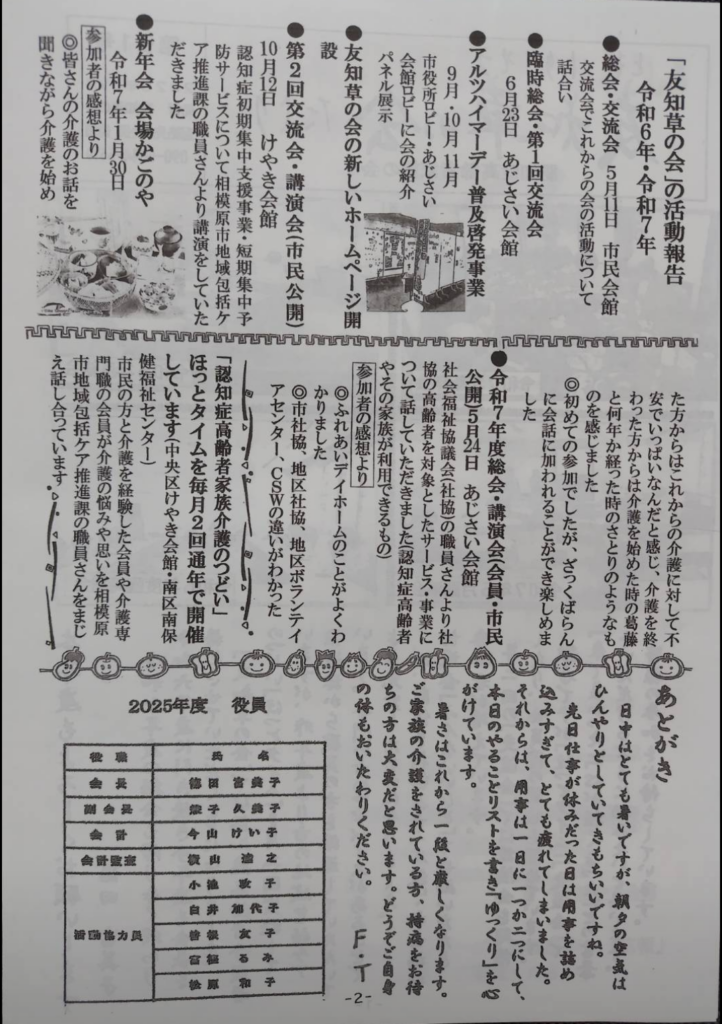 「友知草の会」の活動報告
令和6年・令和7年
●総会・交流会　5月11日　市民会館
交流会でこれからの会の活動について
話合い
●臨時総会・第1回交流会
6月23日　あじさい会館
●アルツハイマーデー普及啓発事業
9月・10月 11月
市役所ロビー・あじさい
会館ロビーに会の紹介
パネル展示
●友知草の会の新しいホームページ開
設
●第2回交流会・講演会(市民公開)
10月12日　けやき会館
認知症初期集中支援事業・短期集中予
防サービスについて相模原市地域包括ケ
ア推進課の職員さんより講演をしていた
だきました
●新年会　会場かごのや
令和7年1月30日
参加者の感想より
◎皆さんの介護のお話を
聞きながら介護を始め
た方からはこれからの介護に対して不
安でいっぱいなんだと感じ、介護を終
わった方からは介護を始めた時の葛藤
と何年か経った時のさとりのようなも
のを感じました
◎初めての参加でしたが、ざっくばらん
に会話に加われることができ楽しめま
した
●令和7年度総会・講演会(会員・市民
公開)5月24日　あじさい会館
社会福祉協議会(社協)の職員さんより社
協の高齢者を対象としたサービス・事業に
ついて話していただきました(認知症高齢者
やその家族が利用できるもの)
参加者の感想より
◎ふれあいデイホームのことがよくわ
かりました
◎市社協、地区社協、地区ボランティ
アセンター、CSWの違いがわかった
「認知症高齢者家族介護のつどい」
ほっとタイムを毎月2回通年で開催
しています(中央区けやき会館・南区南保
健福祉センター)
市民の方と介護を経験した会員や介護専
門職の会員が介護の悩みや思いを相模原
市地域包括ケア推進課の職員さんをまじ
え話し合っています
あとがき
日中はとても暑いですが、朝夕の空気は
ひんやりとしていてきもちいいですね。
先日仕事が休みだった日は用事を詰め
込みすぎて、とても疲れてしまいました。
それからは、用事は一日に一つか二つにして、
本日のやることリストを書き「ゆっくり」を心
がけています。
暑さはこれから一段と厳しくなります。
ご家族の介護をされている方、持病をお持
ちの方は大変だと思います。どうぞご自身
の体もおいたわりください。
F・T
2025年度　役員
役職　氏　名
会長　徳田　富美子
副会長　久美子
会計　今山　けい子
会計監査
活動協力員　小池　子
白井　加代子
曽根　友子
るみ
松原　和子
-2-